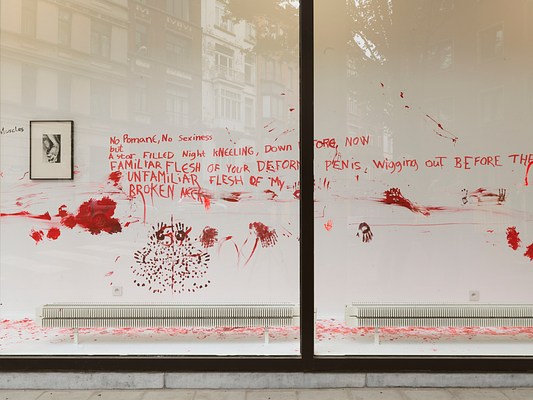 Muscles
No Romance, No Sexiness
but
A star FILLED Night KNEELING, DOWN BEFORE, NOW
FAMILIAR FLESH OF YOUR DEFORM PENiS, Wigging out BEFORE THE
UNFAMILIAR FLESH OF MY
BROKEN NECK